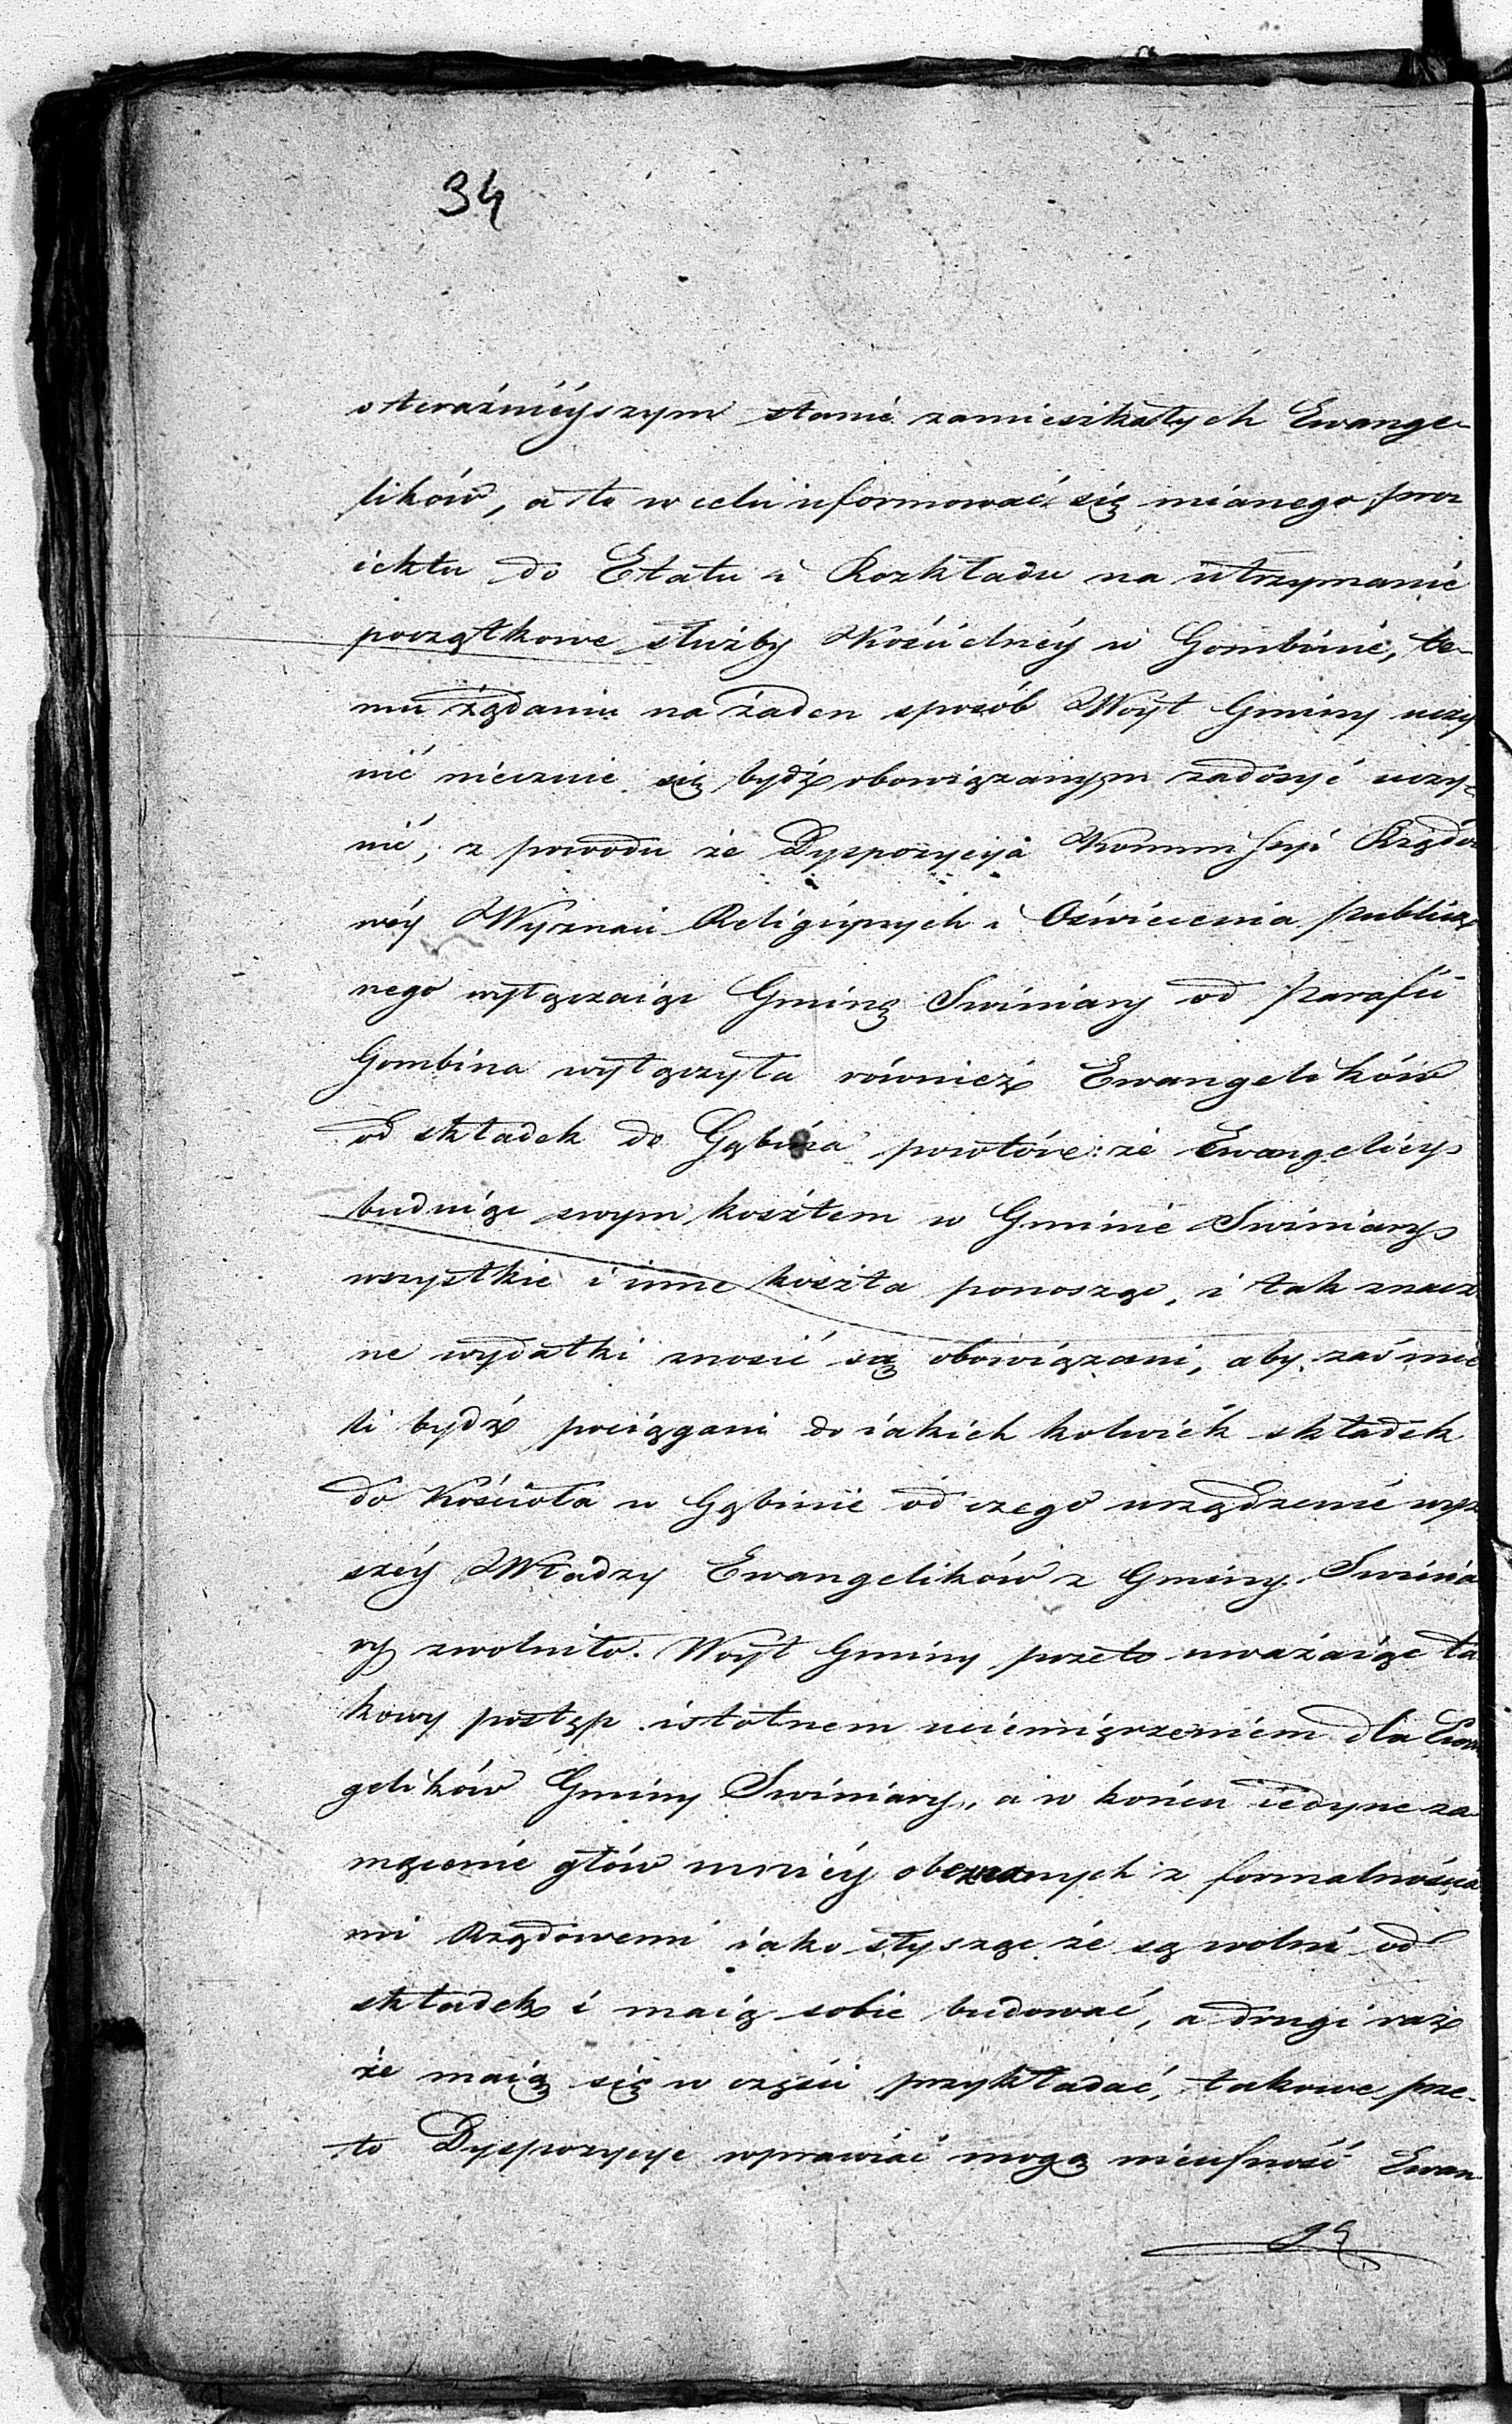 34
o teraźnieyszym stanie zamieszkałych Ewange-
lików, a to w celu uformować się mianego pro
iektu do Etatu i Rozkładu na utrzymanie
początkowe służby Kościelnéy w Gombinie, te-
mu żądaniu na żaden sposób Woyt Gminy uczy
nić nieczuie się bydź obowiązanym zadosyć uczy-
nić, z powodu że Dyspozycya Kommissyi Rządo
wéy Wyznań Religiynych i Oświecenia publicz
nego wyłączaiąc Gminę Swiniary od Parafii
Gombina wyłączyła również Ewangelików
od składek do Gąbina powtóre: że Ewangelicy
buduiąc swym kosztem w Gminie Swiniary
wszystkie i inne koszta ponosząc, i tak znacz
ne wydatki znosić są obowiązani, aby zaś mie
li bydź pociągani do iakich kolwiek składek
do Kościoła w Gąbinie od czego urządzenie wyż
széy Władzy Ewangelików z Gminy Swinia
ry zwolniło. Woyt Gminy przeto uważaiąc ta
kowy postęp istotnem uciemiężeniem dla Ewan
gelików Gminy Swiniary, a w końcu iedyne za
mącenie głów mniéy obeznanych z formalnościa
mi Rządowemi iako słysząc że są wolni od
składek i maią sobie budować, a drugi raz
że maią się w części przykładać, takowe prze-
to Dyspozycye wprawiać mogą nieufność Ewan